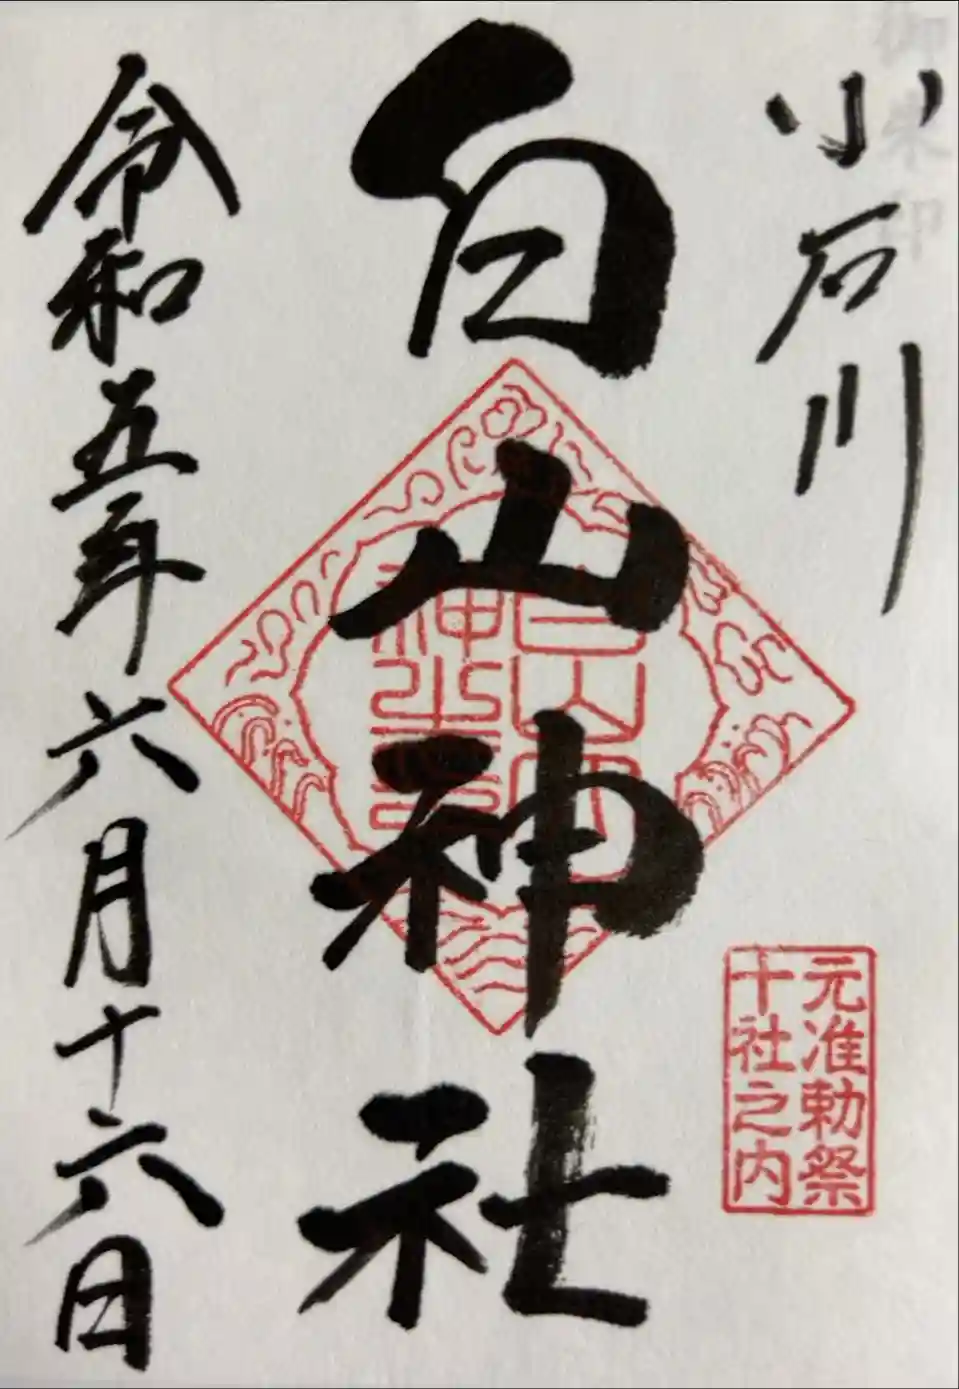 御朱印
小石川
白山神社
元准勅祭
十社之内
令和五年六月十六日